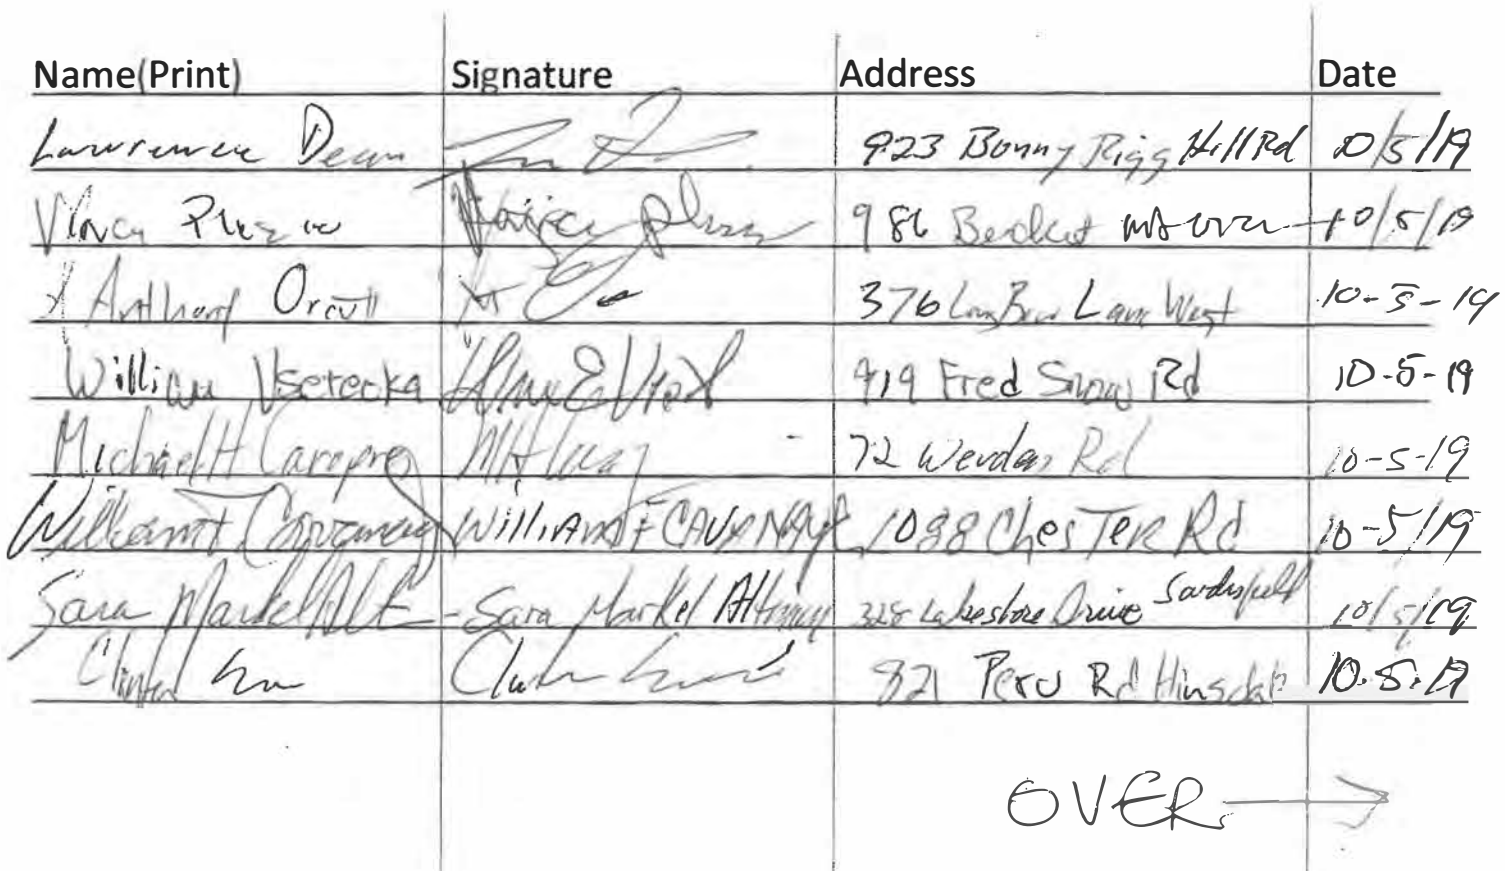 Name(Print) Signature Address Date
Lawrence Dean 923 Bonny Rigg Hill Rd 10/5/19
986 Becket 10/5/19
x Anthony Orcutt 376 Long Bow Lane West 10-5-19
William Vsetecka 919 Fred Snow Rd 10-5-19
Michael H 72 Werden Rd 10-5-19
William F Cavanaugh WILLIAM F CAVANAUGH 1088 ChesTer Rd 10-5/19
Sara Markel Alt - Sara Markel Altman 328 Lakeshore Drive Sandisfield 10/5/19
Clinton 821 Peru Rd Hinsdale 10.5.19
OVER